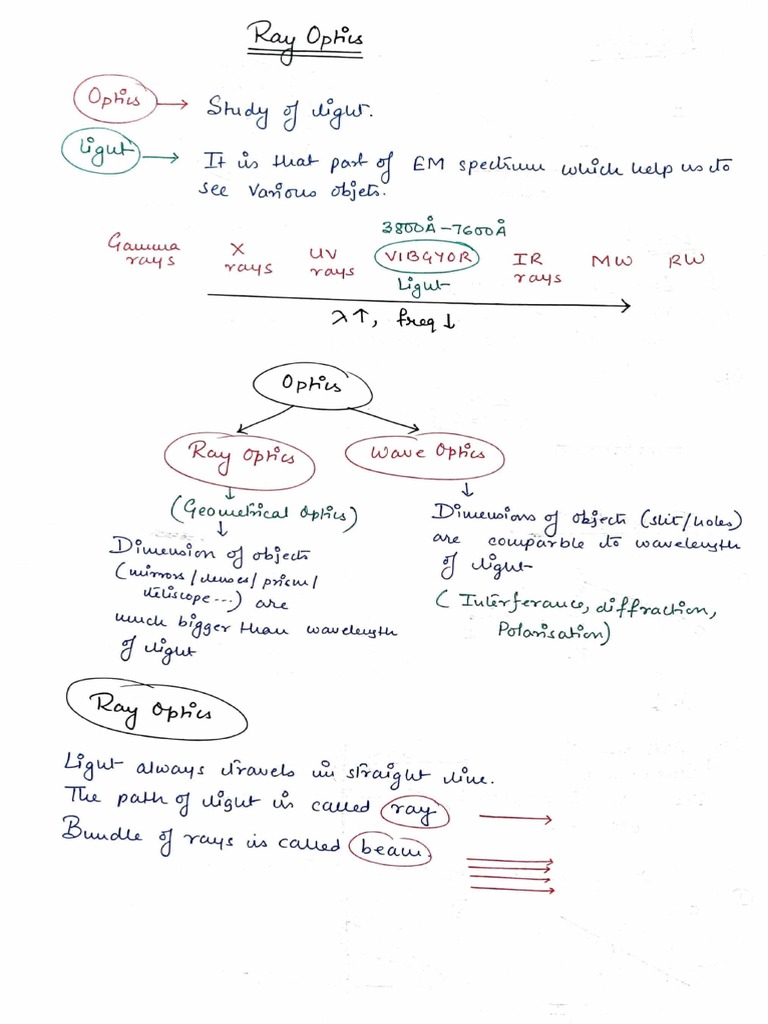 Ray Optics
Optics → Study of light.
Light → It is that part of EM spectrum which help us to
see various objets.
3800Å-7600Å
Gamma rays X rays UV rays VIBGYOR IR rays MW RW
Light
λ↑, freq↓
Optics
Ray Optics Wave Optics
(Geometrical Optics)
Dimension of objects
(mirrors/lenses/prism/
teliscope...) are
much bigger than wavelength
of light
Dimensions of objects (slit/holes)
are comparble to wavelength
of light
(Interferance, diffraction,
Polarisation)
Ray Optics
Light always travels in straight line.
The path of light is called ray
Bundle of rays is called beam.